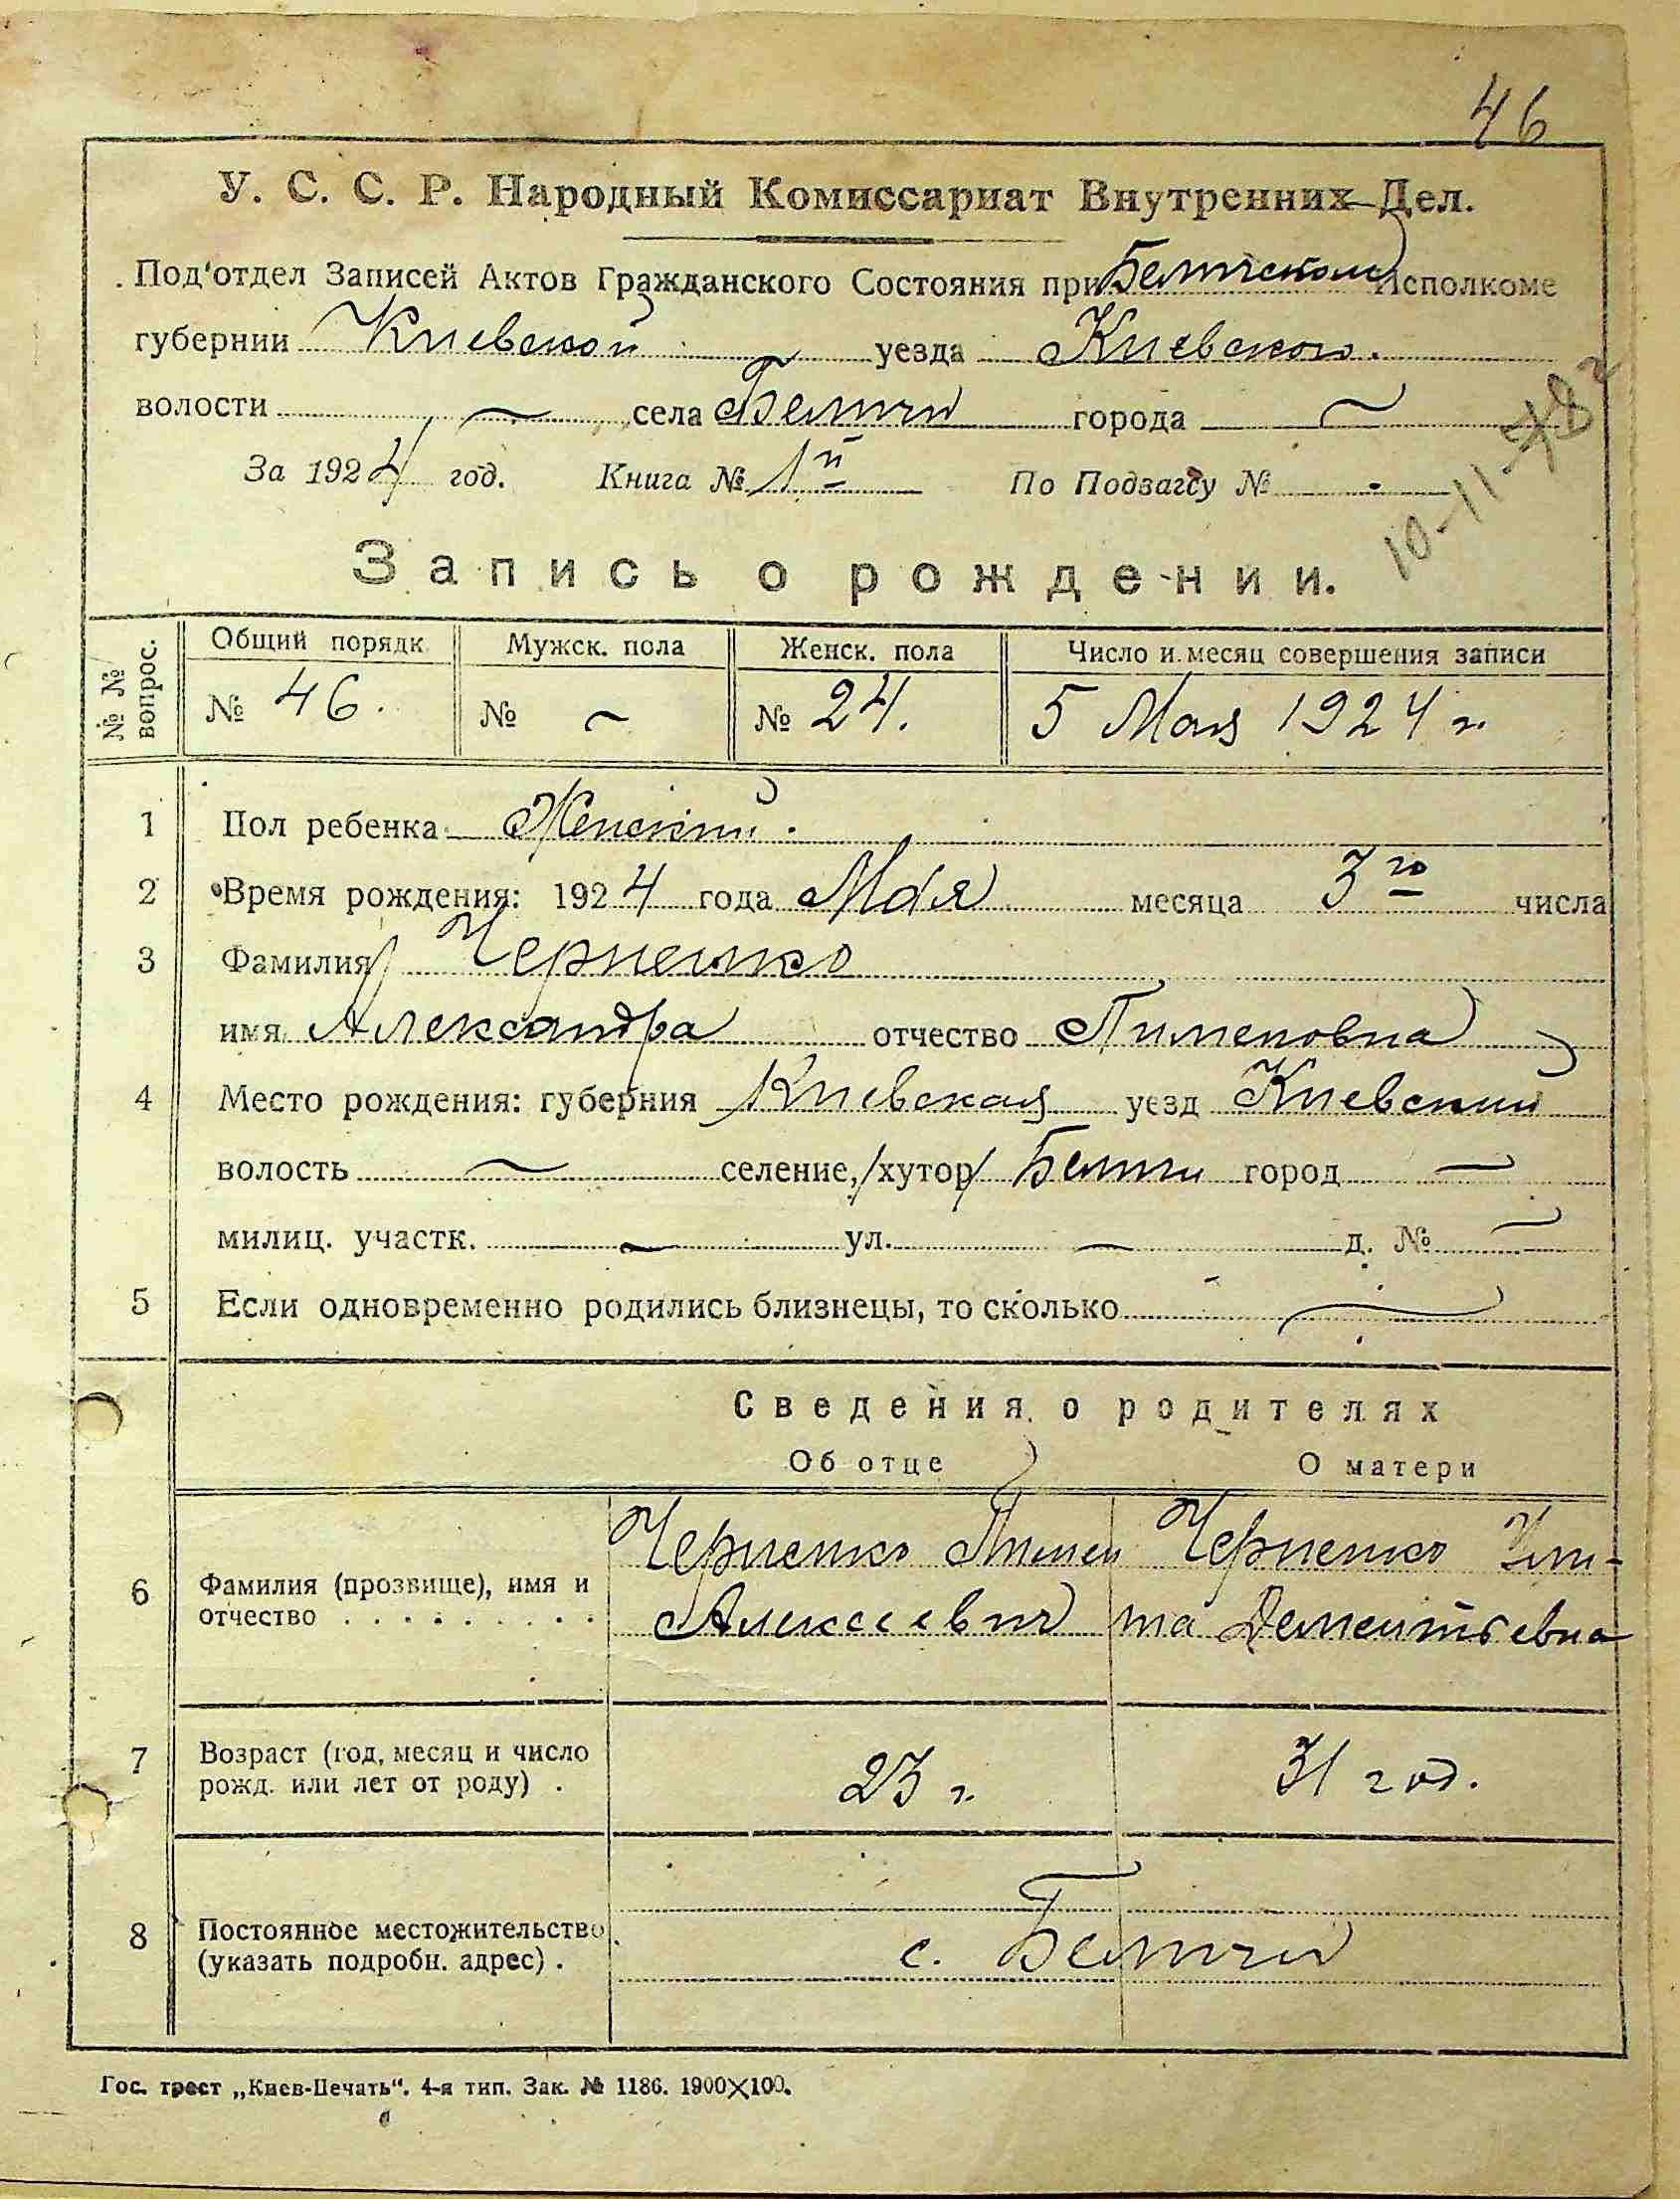 46
У. С. С. Р. Народный Комиссариат Внутренних Дел.
Под'отдел Записей Актов Гражданского Состояния при Беличском Исполкоме
губернии Киевской уезда Киевского.
волости ~ села Беличи города ~
За 1924 год. Книга № 1й По Подзагсу № -
10-11-78 г
Запись о рождении.
№ № вопрос.
Общий порядк. Мужск. пола Женск. пола Число и месяц совершения записи
№ 46. № ~ № 24. 5 Мая 1924 г.
1 Пол ребенка Женский.
2 Время рождения: 1924 года Мая месяца 3го числа
3 Фамилия Черненко
имя Александра отчество Пименовна
4 Место рождения: губерния Киевская уезд Киевский
волость ~ селение, /хутор/ Беличи город ~
милиц. участк. ~ ул. ~ д. № ~
5 Если одновременно родились близнецы, то сколько ~
Сведения о родителях
Об отце О матери
6 Фамилия (прозвище), имя и отчество . . . . . . . . .
Черненко Пимен Алексеевич
Черненко Ули-
та Дементьевна
7 Возраст (год, месяц и число рожд. или лет от роду) .
23 г. 31 год.
8 Постоянное местожительство (указать подробн. адрес) .
с. Беличи
Гос. трест „Киев-Печать“. 4-я тип. Зак. № 1186. 1900×100.